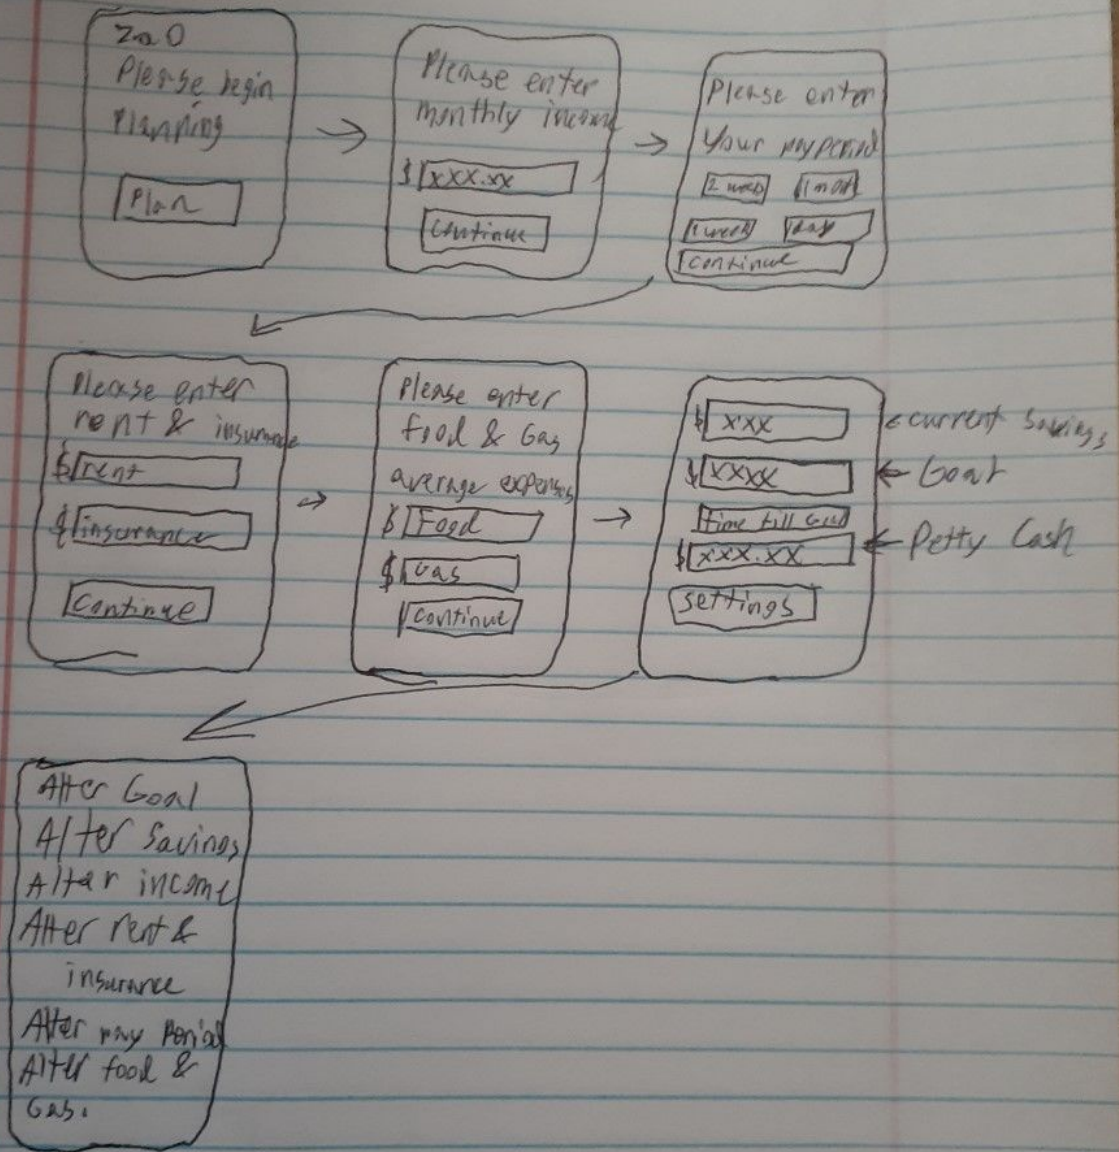 ZaO
Please begin
Planning
Plan
Please enter
monthly income
$ xxx.xx
Continue
Please enter
Your pay period
2 week 1 month
1 week 1 day
Continue
Please enter
rent & insurance
$ rent
$ insurance
Continue
Please enter
food & Gas
average expenses
$ Food
$ Gas
Continue
$ xxx
current savings
$ xxxx
Goal
time till Goal
$ xxx.xx
Petty Cash
settings
Alter Goal
Alter Savings
Alter income
Alter rent &
insurance
Alter pay Period
Alter food &
Gas.